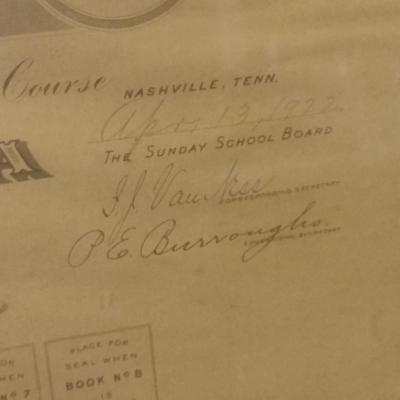 Course
NASHVILLE, TENN.
Apr. 13, 1922
THE SUNDAY SCHOOL BOARD
A
I. J. Van Ness
CORRESPONDING SECRETARY
P. E. Burroughs.
EDUCATIONAL SECRETARY
FOR
WHEN
Nº 7
PLACE FOR
SEAL WHEN
BOOK Nº 8
IS